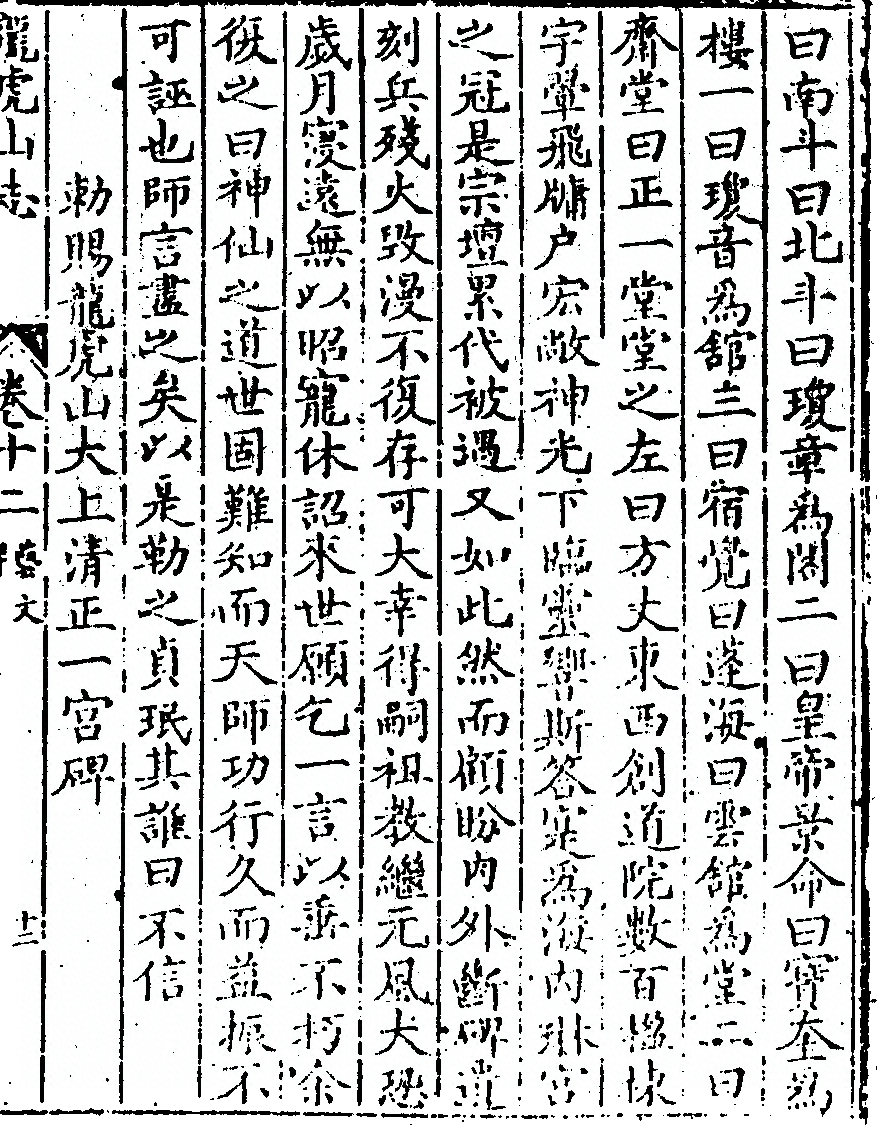 曰南斗曰北斗曰瓊章為閣二曰皇帝景命曰寶奎為
樓一曰瓊音為舘三曰宿覺曰蓬海曰雲舘為堂二曰
齋堂曰正一堂堂之左曰方丈東西創道院數百楹棟
宇翬飛牖户宏敞神光下臨靈響斯答寔為海内琳宮
之冠是宗壇累代被遇又如此然而顧盼内外斷碑遺
刻兵殘火毀漫不復存可大幸得嗣祖教繼元風大恐
歲月寖遠無以昭寵休詔來世願乞一言以垂不朽余
復之曰神仙之道世固難知而天師功行久而益振不
可誣也師言盡之矣以是勒之貞珉其誰曰不信
勅賜龍虎山大上清正一宮碑
龍虎山志
卷十二
藝文
十二